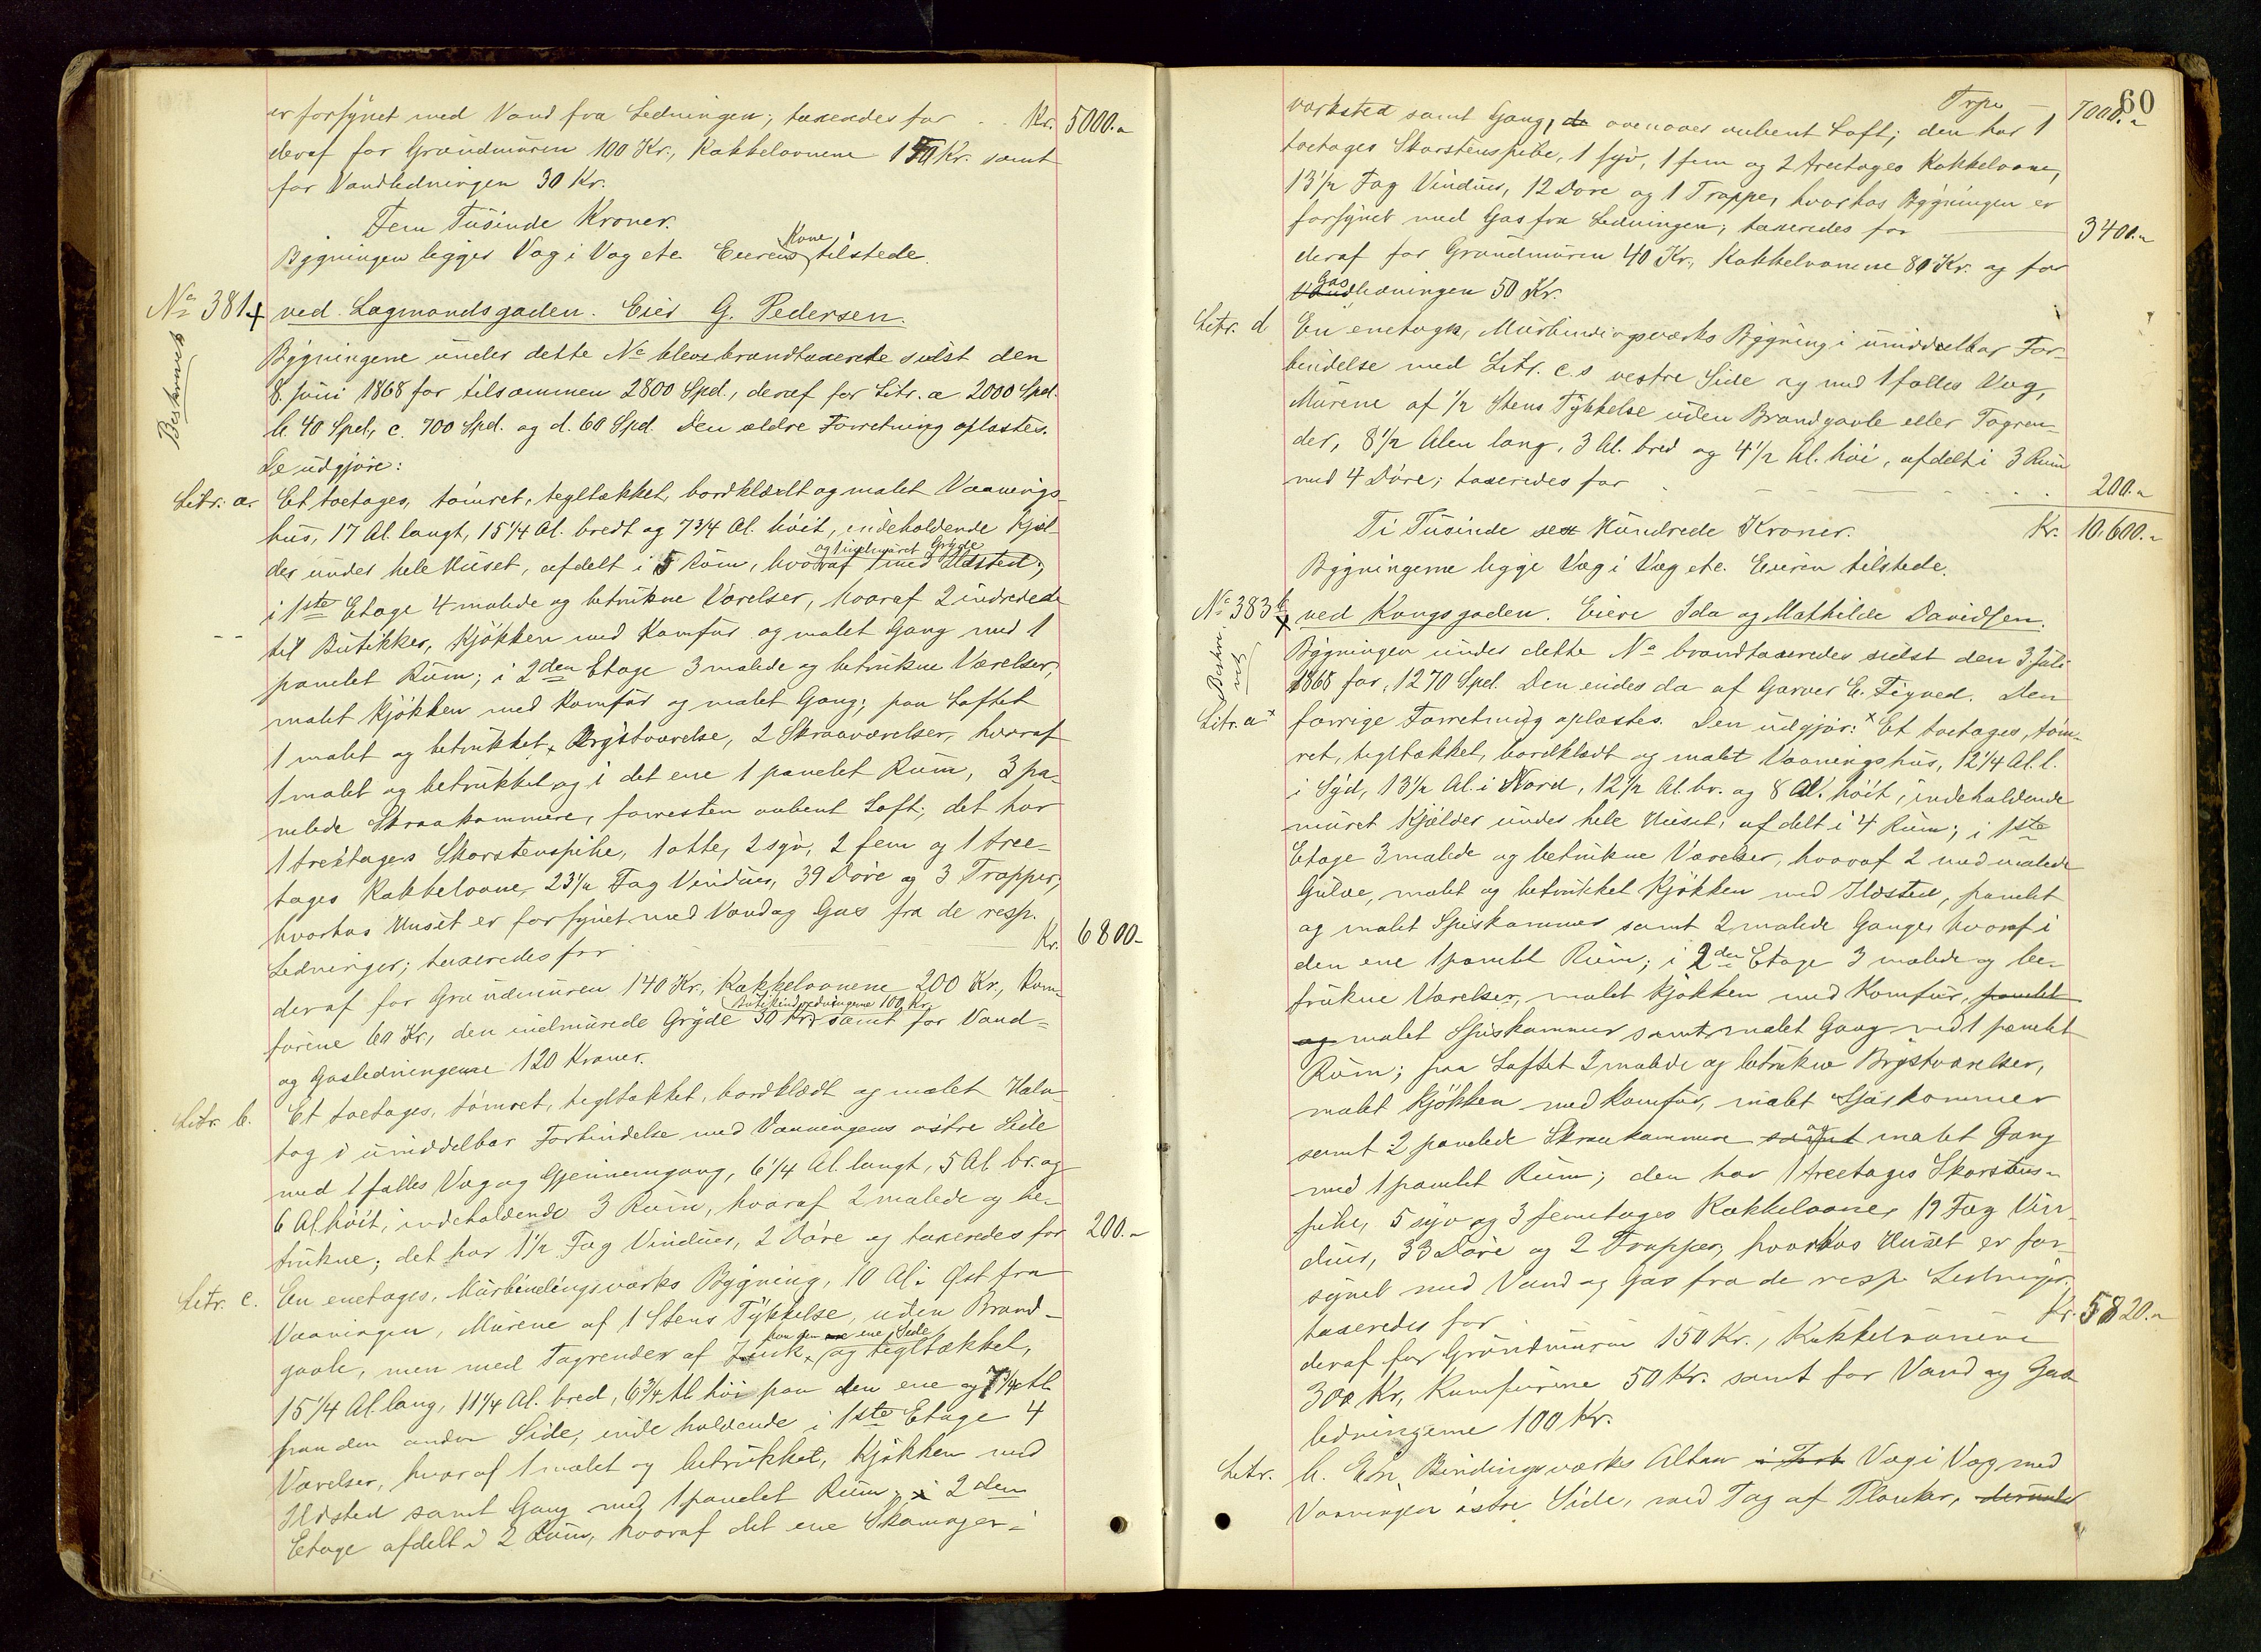 er forsynet med Vand fra Ledningen; taxeredes for . . Kr. 5000.-
deraf for Grundmuren 100 Kr., Kakkelovnene 150 Kr. samt
for Vandledningen 30 Kr.
Fem Tusinde Kroner.
Kone
Bygningen ligger Væg i Væg etc. Eierens tilstede.
No 381 + ved Lagmandsgaden. Eier G. Pedersen.
Beskrevet
Bygningerne under dette No blev brandtaxerede sidst den
8. Juni 1868 for tilsammen 2800 Spd., deraf for Litr. a 2000 Spd.
b. 40 Spd., c. 700 Spd. og d. 60 Spd. Den ældre Forretning oplæstes.
De udgjøre:
Litr. a. Et toetages, tømret, tegltækket, bordklædt og malet Vaanings-
hus, 17 Al. langt, 15 1/4 Al. bredt og 7 3/4 Al. høit, indeholdende Kjæl-
og 1 indmuret Gryde
der under hele Huset, afdelt i 5 Rum, hvoraf 1 med Ildsted;
i 1ste Etage 4 malede og betrukne Værelser, hvoraf 2 indredede
til Butikker, Kjøkken med Komfur og malet Gang med 1
panelet Rum; i 2den Etage 3 malede og betrukne Værelser,
malet Kjøkken med Komfur og malet Gang; paa Loftet
1 malet og betrukket Brystværelse, 2 Skraaværelser, hvoraf
1 malet og betrukket og i det ene 1 panelet Rum, 3 pa-
nelede Skraakammere, forresten aabent Loft; det har
1 treetages Skorstenspibe, 1 otte, 2 syv, 2 fem og 1 tree-
tages Kakkelovne, 23 1/2 Fag Vinduer, 39 Døre og 3 Trapper,
hvorhos Huset er forsynet med Vand og Gas fra de resp.
Ledninger; taxeredes for Kr. 6800-
deraf for Grundmuren 140 Kr., Kakkelovnene 200 Kr., Kom-
Butikindredningerne 100 Kr.
furene 60 Kr., den indmurede Gryde 30 Kr. samt for Vand-
og Gasledningerne 120 Kroner.
Litr. b. Et toetages, tømret, tegltækket, bordklædt og malet Halv-
tag i umiddelbar Forbindelse med Vaaningens østre Side
med 1 fælles Væg og Gjennemgang, 6 1/4 Al. langt, 5 Al. br. og
6 Al. høit, indeholdende 3 Rum, hvoraf 2 malede og be-
trukne; det har 1 1/2 Fag Vinduer, 2 Døre og taxeredes for 200.-
Litr. c. En enetages, Murbindingsværks Bygning, 10 Al. Øst fra
Vaaningen, Murene af 1 Stens Tykkelse, uden Brand-
paa den ene Side
gavle, men med Tagrender af Zink og tegltækket,
15 1/4 Al. lang, 11 1/4 Al. bred, 6 3/4 Al. høi paa den ene og 7 1/4 Al.
paa den anden Side, indeholdende i 1ste Etage 4
Værelser, hvoraf 1 malet og betrukket, Kjøkken med
Ildsted samt Gang med 1 panelet Rum, i 2den
Etage afdelt i 2 Rum, hvoraf det ene Skomager-
60
værksted samt Gang, de ovenover aabent Loft; den har 1 Trpt. 7000.-
toetages Skorstenspibe, 1 syv, 1 fem og 2 treetages Kakkelovne,
13 1/2 Fag Vinduer, 12 Døre og 1 Trappe, hvorhos Bygningen er
forsynet med Gas fra Ledningen; taxeredes for 3400.-
deraf for Grundmuren 40 Kr., Kakkelovnene 80 Kr. og for
Gas
Vandledningen 50 Kr.
Litr. d En enetages, Murbindingsværks Bygning i umiddelbar For-
bindelse med Litr. c.s vestre Side og med 1 fælles Væg,
Murene af 1/2 Stens Tykkelse uden Brandgavle eller Tagren-
der, 8 1/2 Alen lang, 3 Al. bred og 4 1/2 Al. høi, afdelt i 3 Rum
med 4 Døre; taxeredes for 200.-
Ti Tusinde sex Hundrede Kroner. Kr. 10,600.-
Bygningerne ligge Væg i Væg etc. Eieren tilstede.
No 383 b + ved Kongsgaden. Eiere Ida og Mathilde Davidsen.
Beskrevet
Bygningen under dette No brandtaxeredes sidst den 3 Juli
1868 for 1270 Spd. Den eiedes da af Garver E. Figved. Den
Litr. a x forrige Forretning oplæstes. Den udgjør: x Et toetages, tøm-
ret, tegltækket, bordklædt og malet Vaaningshus, 12 1/4 Al. l.
i Syd, 13 1/2 Al. i Nord, 12 1/2 Al. br. og 8 Al. høit, indeholdende
muret Kjælder under hele Huset, afdelt i 4 Rum; i 1ste
Etage 3 malede og betrukne Værelser, hvoraf 2 med malede
Gulve, malet og betrukket Kjøkken med Ildsted, panelet
og malet Spiskammer samt 2 malede Gange, hvoraf i
den ene 1 panelt Rum; i 2den Etage 3 malede og be-
trukne Værelser, malet Kjøkken med Komfur, panelet
og malet Spiskammer samt malet Gang med 1 panelet
Rum; paa Loftet 2 malede og betrukne Brystværelser,
malet Kjøkken med Komfur, malet Spiskammer
og
samt 2 panelede Skraakammere samt malet Gang
med 1 panelet Rum; den har 1 treetages Skorstens-
pibe, 5 syv og 3 femetages Kakkelovne, 19 Fag Vin-
duer, 33 Døre og 2 Trapper, hvorhos Huset er for-
synet med Vand og Gas fra de resp. Ledninger.
taxeredes for Kr. 5820.-
deraf for Grundmuren 150 Kr., Kakkelovnene
300 Kr., Komfurene 50 Kr. samt for Vand og Gas-
ledningerne 100 Kr.
Litr. b. En Bindingsværks Altan i Forb. Væg i Væg med
Vaaningen østre Side, med Tag af Planker, derunder